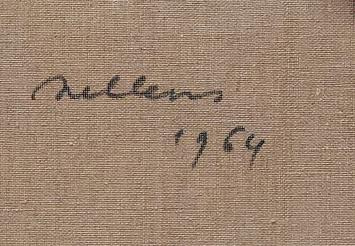 Nellens
1964